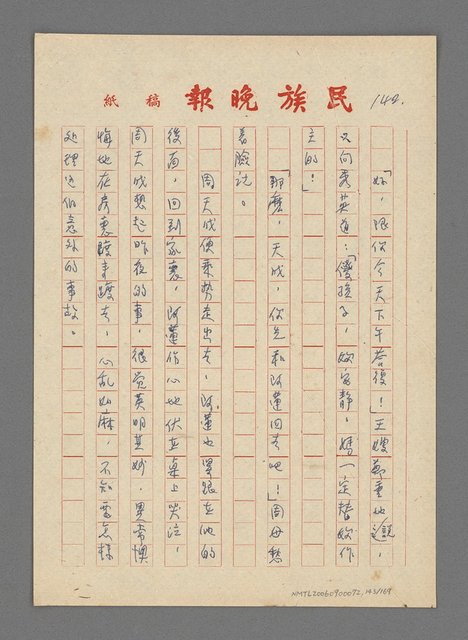 民族晚報 稿紙
142.
「好，限你今天下午答復！」王嫂鄭重地說，
又向秀英道：「傻孩子，妳安靜，媽一定替妳作
主的！」
「那麼，天成，你先和阿蓮回去吧！」周母愁
著臉說。
周天成便乘勢走出去，阿蓮也緊跟在他的
後面，回到家裏，阿蓮伏在桌上哭泣，
周天成想起昨夜的事，很覺莫明其妙，異常懊
悔地在房裏踱來踱去，心亂如麻，不知要怎樣
处理這個意外的事故。
NMTL20060900072, 143/169